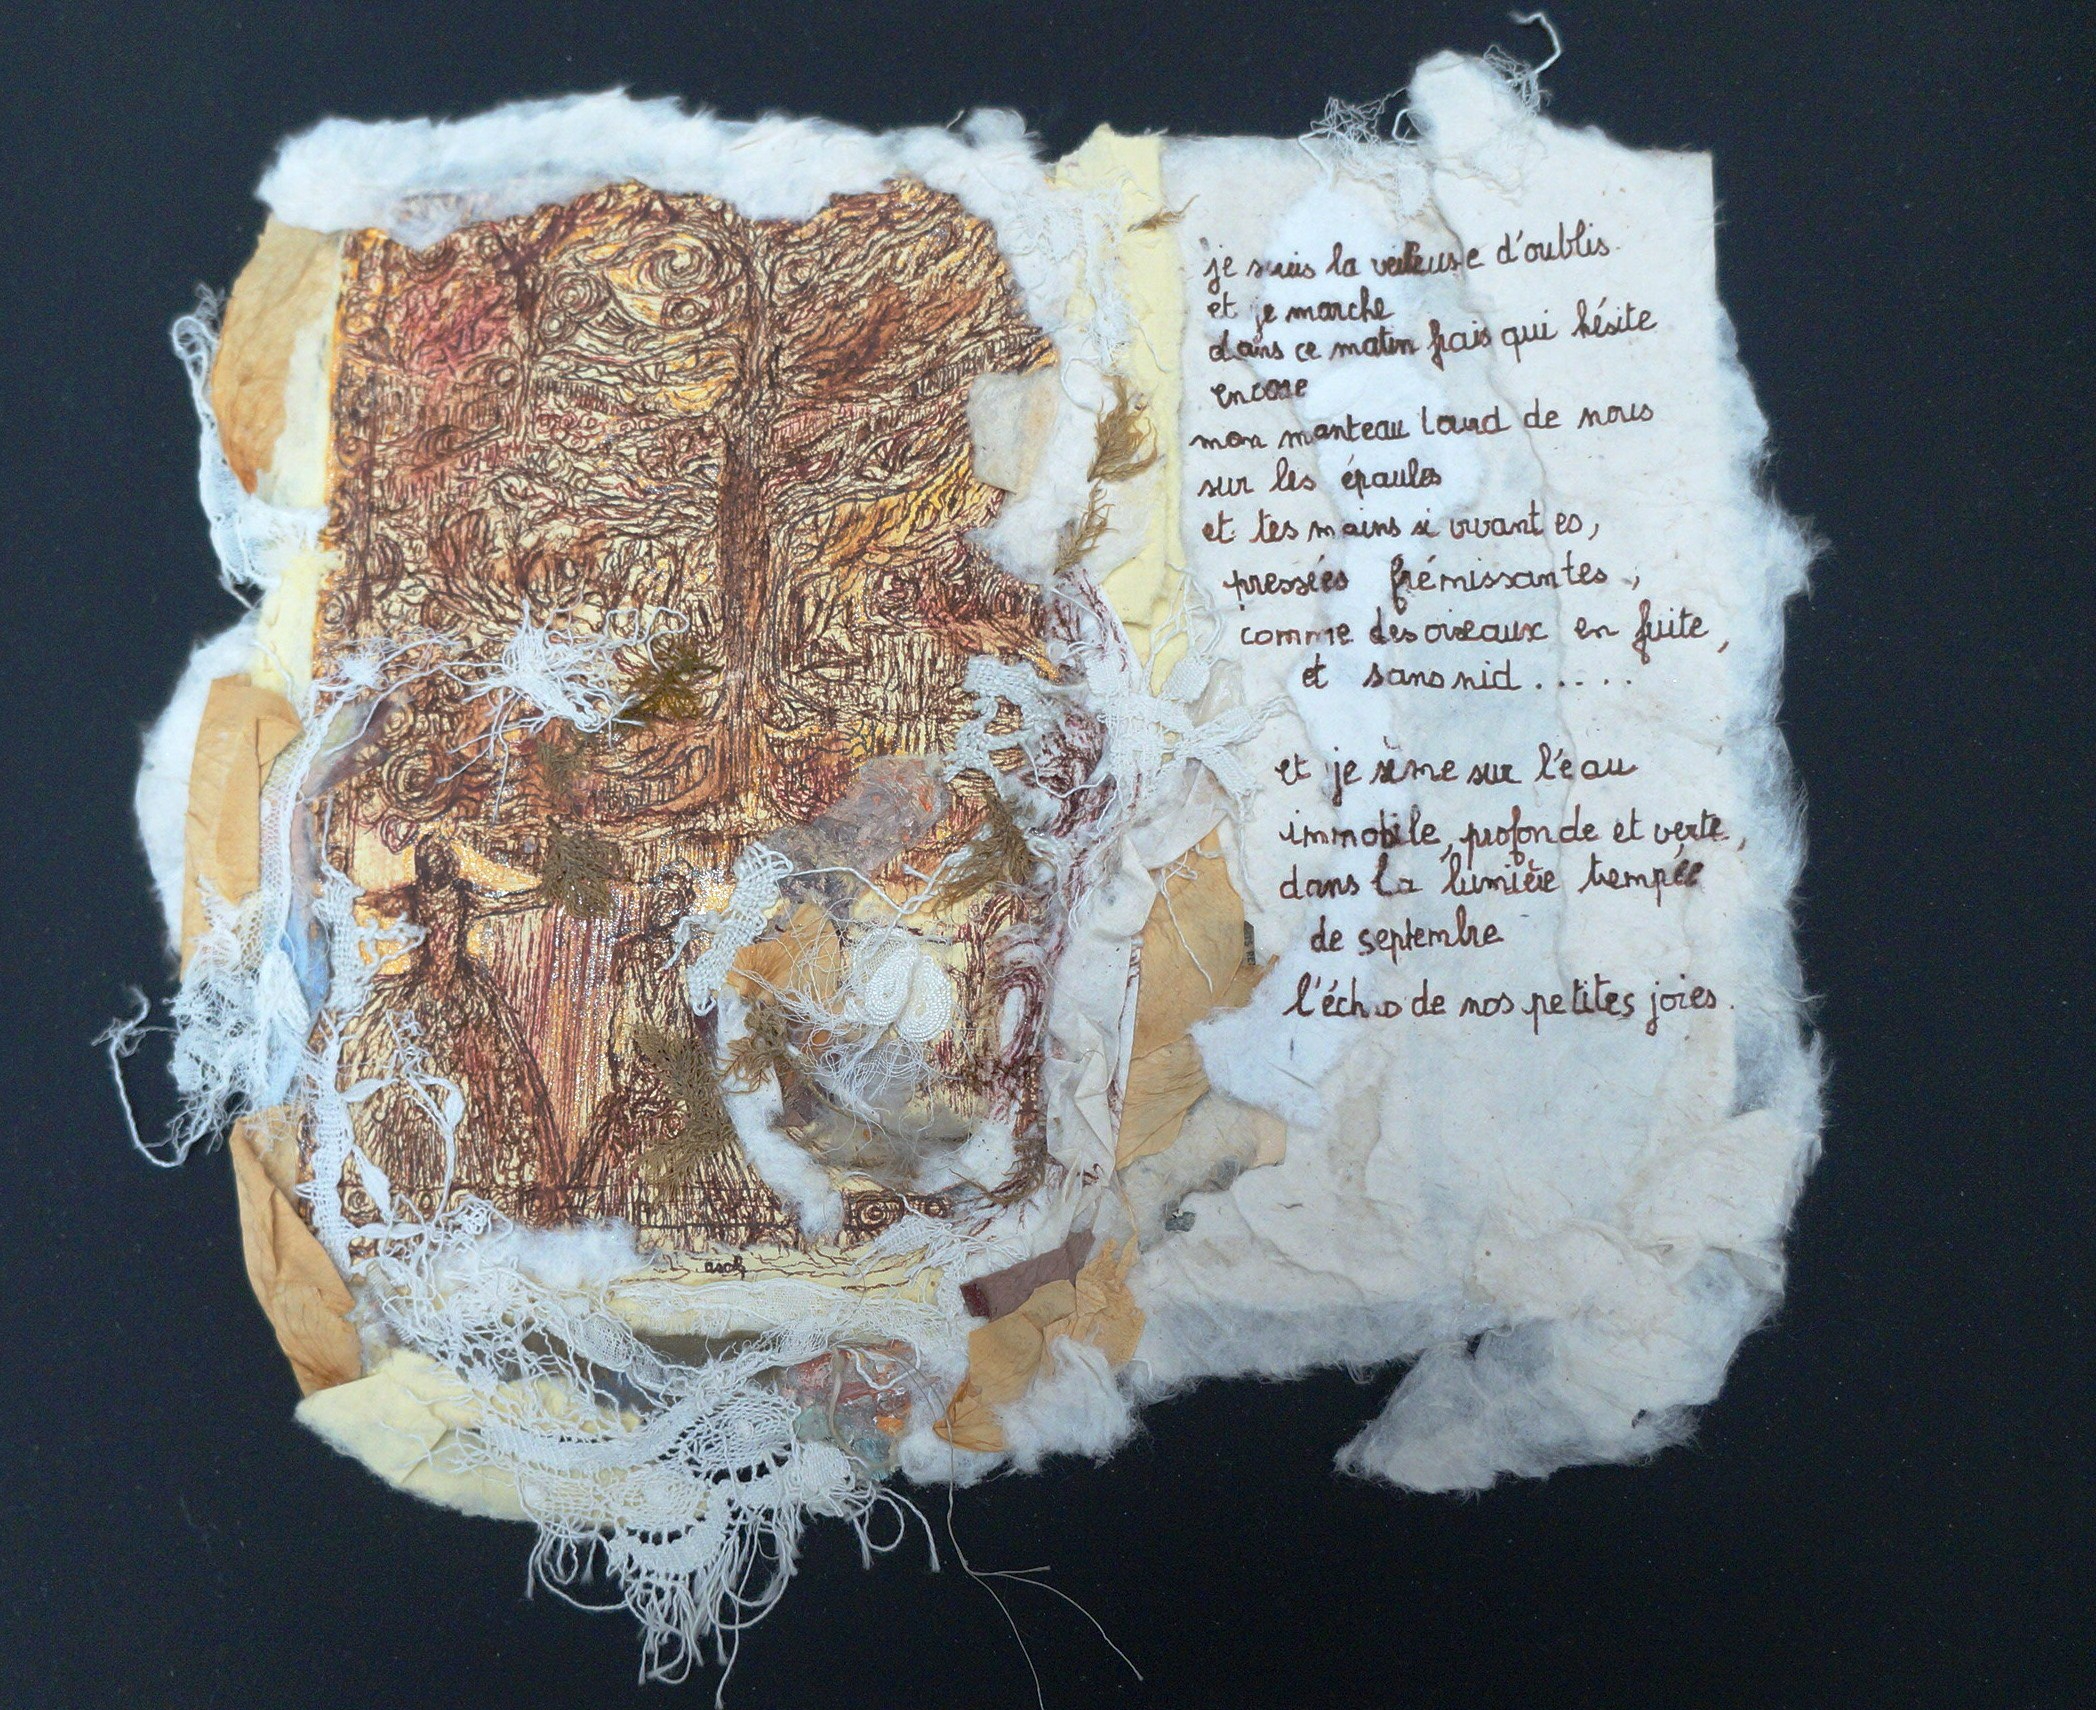 je suis la veilleuse d'oublis.
et je marche
dans ce matin frais qui hésite
encore
mon manteau lourd de nous
sur les épaules
et tes mains si vivantes,
pressées frémissantes,
comme des oiseaux en fuite,
et sans nid.....
et je sème sur l'eau
immobile, profonde et verte,
dans la lumière trempée
de septembre
l'écho de nos petites joies.
asch